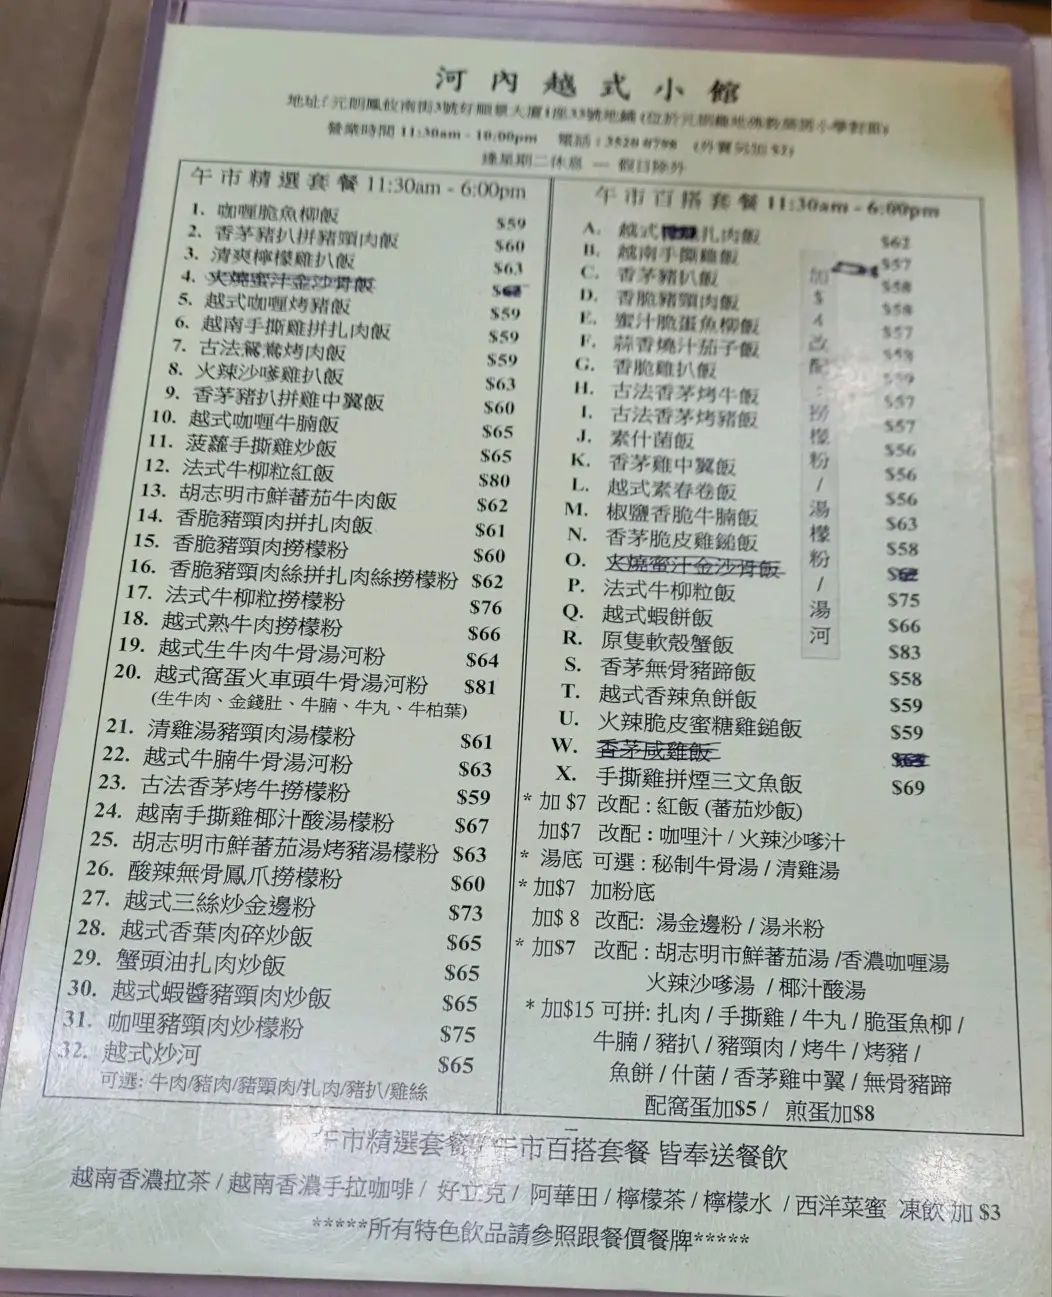 河內越式小館
地址: 元朗鳳攸南街3號好順景大廈1座33號地舖 (位於元朗
營業時間 11:30am - 10:00pm 電話 : 3520 0798 (外賣另加 $2)
逢星期二休息 — 假日除外
午市精選套餐 11:30am - 6:00pm
1. 咖喱脆魚柳飯 $59
2. 香茅豬扒拼豬頸肉飯 $60
3. 清爽檸檬雞扒飯 $63
4. 火燒蜜汁金沙骨飯
5. 越式咖喱烤豬飯 $59
6. 越南手撕雞拼扎肉飯 $59
7. 古法鴛鴦烤肉飯 $59
8. 火辣沙嗲雞扒飯 $63
9. 香茅豬扒拼雞中翼飯 $60
10. 越式咖喱牛腩飯 $65
11. 菠蘿手撕雞炒飯 $65
12. 法式牛柳粒紅飯 $80
13. 胡志明市鮮蕃茄牛肉飯 $62
14. 香脆豬頸肉拼扎肉飯 $61
15. 香脆豬頸肉撈檬粉 $60
16. 香脆豬頸肉絲拼扎肉絲撈檬粉 $62
17. 法式牛柳粒撈檬粉 $76
18. 越式熟牛肉撈檬粉 $66
19. 越式生牛肉牛骨湯河粉 $64
20. 越式窩蛋火車頭牛骨湯河粉 $81
(生牛肉、金錢肚、牛腩、牛丸、牛柏葉)
21. 清雞湯豬頸肉湯檬粉 $61
22. 越式牛腩牛骨湯河粉 $63
23. 古法香茅烤牛撈檬粉 $59
24. 越南手撕雞椰汁酸湯檬粉 $67
25. 胡志明市鮮蕃茄湯烤豬湯檬粉 $63
26. 酸辣無骨鳳爪撈檬粉 $60
27. 越式三絲炒金邊粉 $73
28. 越式香葉肉碎炒飯 $65
29. 蟹頭油扎肉炒飯 $65
30. 越式蝦醬豬頸肉炒飯 $65
31. 咖哩豬頸肉炒檬粉 $75
32. 越式炒河 $65
可選: 牛肉/豬肉/豬頸肉/扎肉/豬扒/雞絲
午市百搭套餐 11:30am - 6:00pm
A. 越式扎肉飯 $62
B. 越南手撕雞飯 $57
C. 香茅豬扒飯 $58
D. 香脆豬頸肉飯 $58
E. 蜜汁脆蛋魚柳飯 $57
F. 蒜香燒汁茄子飯 $58
G. 香脆雞扒飯 $59
H. 古法香茅烤牛飯 $57
I. 古法香茅烤豬飯 $57
J. 素什菌飯 $56
K. 香茅雞中翼飯 $56
L. 越式素春卷飯 $56
M. 椒鹽香脆牛腩飯 $63
N. 香茅脆皮雞鎚飯 $58
O. 火燒蜜汁金沙骨飯
P. 法式牛柳粒飯 $75
Q. 越式蝦餅飯 $66
R. 原隻軟殼蟹飯 $83
S. 香茅無骨豬蹄飯 $58
T. 越式香辣魚餅飯 $59
U. 火辣脆皮蜜糖雞鎚飯 $59
W. 香茅咸雞飯
X. 手撕雞拼煙三文魚飯 $69
加$4改配:撈檬粉/湯檬粉/湯河
* 加 $7 改配 : 紅飯 (蕃茄炒飯)
加$7 改配 : 咖哩汁 / 火辣沙嗲汁
* 湯底 可選 : 秘制牛骨湯 / 清雞湯
* 加$7 加粉底
加$ 8 改配: 湯金邊粉 / 湯米粉
* 加$7 改配 : 胡志明市鮮蕃茄湯 /香濃咖喱湯
火辣沙嗲湯 / 椰汁酸湯
* 加$15 可拼: 扎肉 / 手撕雞 / 牛丸 / 脆蛋魚柳 /
牛腩 / 豬扒 / 豬頸肉 / 烤牛 / 烤豬 /
魚餅 / 什菌 / 香茅雞中翼 / 無骨豬蹄
配窩蛋加$5 / 煎蛋加$8
午市精選套餐 / 午市百搭套餐 皆奉送餐飲
越南香濃拉茶 / 越南香濃手拉咖啡 / 好立克 / 阿華田 / 檸檬茶 / 檸檬水 / 西洋菜蜜 凍飲 加 $3
*****所有特色飲品請參照跟餐價餐牌*****